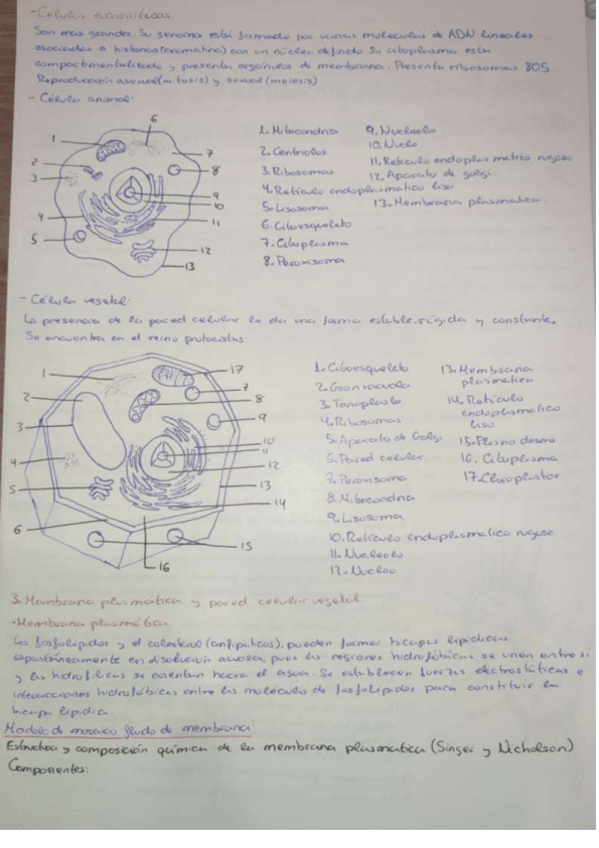 -Celulas eucarióticas:
Son mas grandes. Su genoma está formado por varias moleculas de ADN lineales
asociadas a histonas(cromatina) con un núcleo definido. Su citoplasma esta
compartimentalizado y presenta orgánulos de membrana. Presenta ribosomas 80S.
Reproducción asexual(mitosis) y sexual (meiosis)
- Célula animal:
1. Mitocondria
2. Centriolos
3. Ribosomas
4. Retículo endoplasmatico liso
5. Lisosoma
6. Citoesqueleto
7. Citoplasma
8. Peroxisoma
9. Nucleolo
10. Nucleo
11. Reticulo endoplasmatico rugoso
12. Aparato de golgi
13. Membrana plasmatica.
1
2
3
4
5
6
7
8
9
10
11
12
13
- Célula vegetal:
La presencia de la pared celular le da una forma estable, rígida y constante.
Se encuentra en el reino protoctistas
1. Citoesqueleto
2. Gran vacuola
3. Tonoplasto
4. Ribosomas
5. Aparato de Golgi
6. Pared celular
7. Peroxisoma
8. Mitocondria
9. Lisosoma
10. Retículo endoplasmatico rugoso
11. Nucleolo
12. Nucleo
13. Membrana
plasmatica
14. Retículo
endoplasmatico
liso
15. Plasmodesmo
16. Citoplasma
17. Cloroplastos
1
2
3
4
5
6
17
7
8
9
10
11
12
13
14
15
16
3. Membrana plasmática y pared celular vegetal
-Membrana plasmática.
Los fosfolípidos y el colesterol (anfipaticos), pueden formar bicapas lipídicas
espontáneamente en disolución acuosa, pues las regiones hidrofóbicas se unen entre si
y las hidrofílicas se orientan hacia el agua. Se establecen fuerzas electrostáticas e
interacciones hidrofóbicas entre las moléculas de fosfolípidos para constituir la
bicapa lipídica.
Modelo de mosaico fluido de membrana:
Estructura y composición química de la membrana plasmatica (Singer y Nicholson)
Componentes: